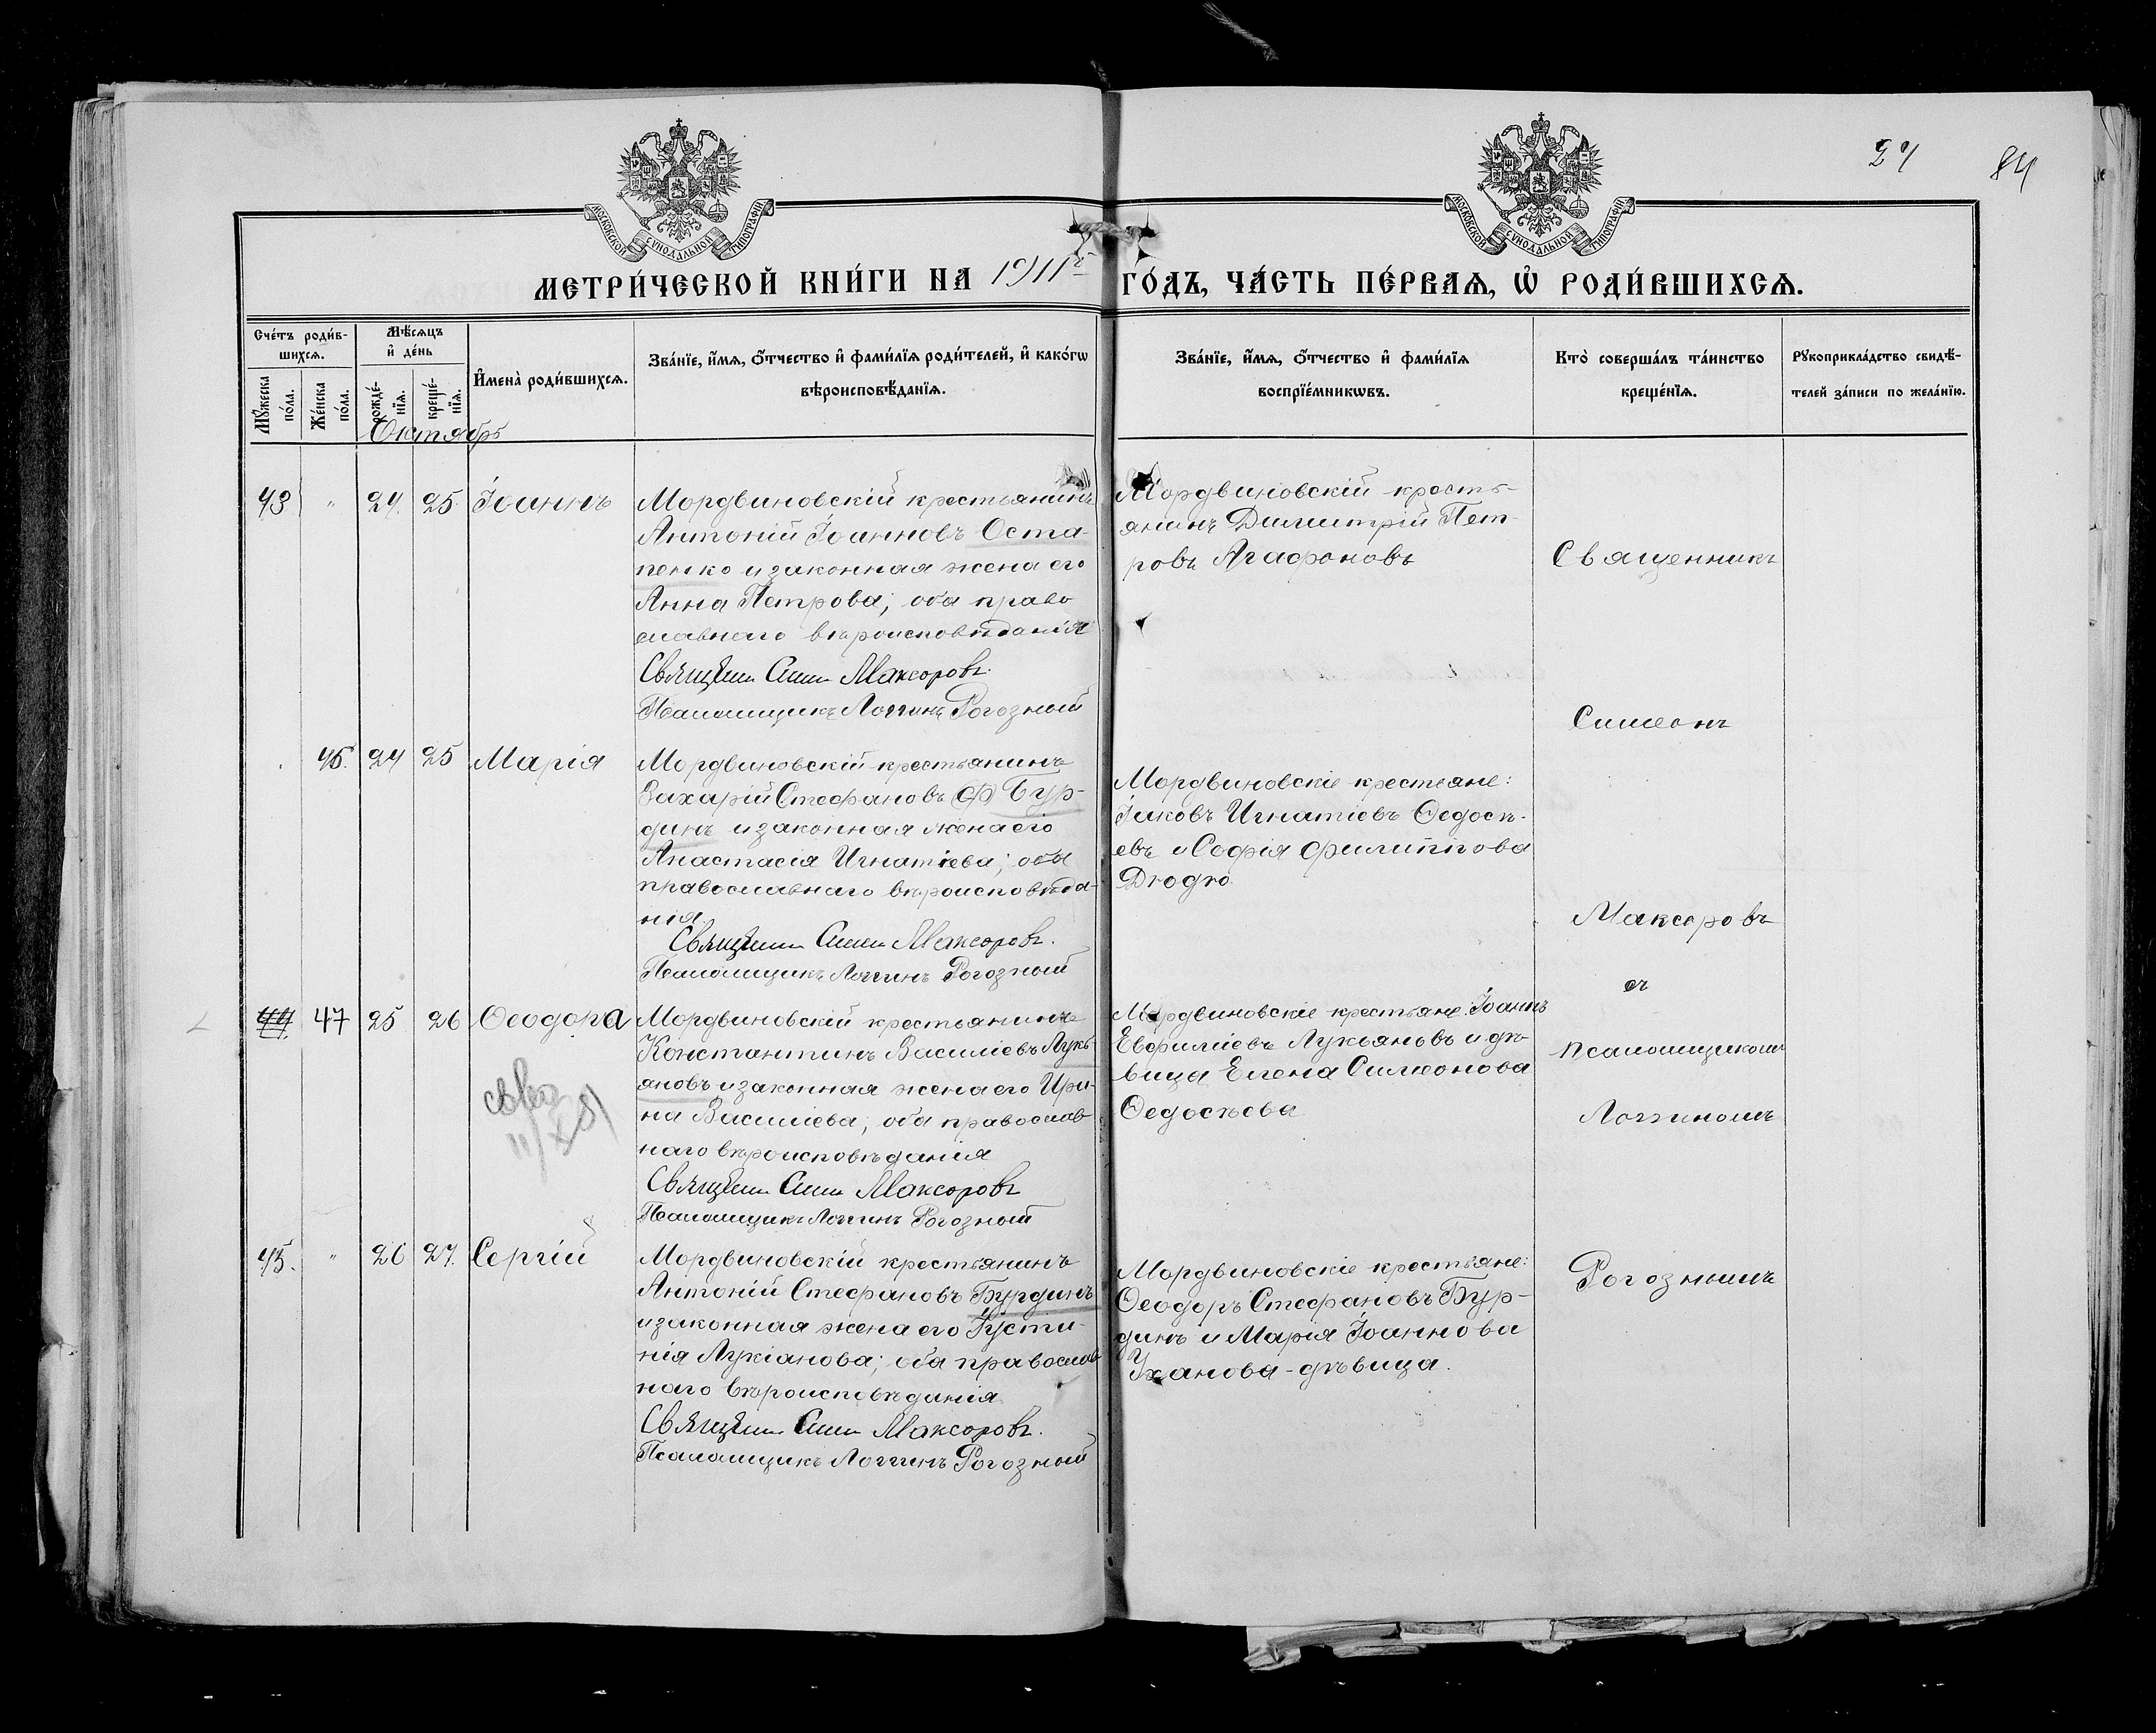 24 84
МОСКОВСКОЙ СѴНОДАЛЬНОЙ ТИПОГРАФІИ
МОСКОВСКОЙ СѴНОДАЛЬНОЙ ТИПОГРАФІИ
МЕТРИ́ЧЕСКОЙ КНИ́ГИ НА 1911 г ГО́ДЪ, ЧА́СТЬ ПЕ́РВАѦ, Ѡ҆ РОДИ́ВШИХСѦ.
Сче́тъ роди́в-
шихсѧ.
Мꙋ́жеска по́ла.
Же́нска по́ла.
Мѣ́сѧцъ
и҆ де́нь
рожде́-
нїѧ.
креще́-
нїѧ.
И҆мена̀ роди́вшихсѧ.
Зва́нїе, и҆́мѧ, ѻ҆́тчество и҆ фами́лїѧ роди́телей, и҆ како́гѡ
вѣроисповѣ́данїѧ.
Зва́нїе, и҆́мѧ, ѻ҆́тчество и҆ фами́лїѧ
воспрїе́мникѡвъ.
Кто̀ соверша́лъ та́инство
креще́нїѧ.
Рꙋкоприкла́дство свидѣ́-
телей за́писи по жела́нїю.
Октябрь
43 " 24. 25. Іоаннъ
Мордвиновскій крестьянинъ
Антоній Іоанновъ Оста-
пенко и законная жена его
Анна Петрова; оба право
славнаго вѣроисповѣданія
Священ. Симе Максоровъ.
Псаломщикъ Логгинъ Рогозный
Мордвиновскій кресть-
янинъ Димитрій Пет-
ровъ Агафоновъ
46. 24 25 Марія
Мордвиновскій крестьянинъ
Захарій Стефановъ Бур-
динъ и законная жена его
Анастасія Игнатіева; оба
православнаго вѣроисповѣда-
нія.
Священ. Симе Максоровъ.
Псаломщикъ Логгинъ Рогозный
Мордвиновскіе крестьяне:
Іаковъ Игнатіевъ Ѳедосѣ-
евъ и Софія Филиппова
Дюдю
44 47 25 26 Ѳеодора
Мордвиновскій крестьянинъ
Константинъ Василіевъ Лукь-
яновъ и законная жена его Ири-
на Василіева; оба православ
наго вѣроисповѣданія
Священ. Симе Максоровъ
Псаломщикъ Логгинъ Рогозный
Мордвиновскіе крестьяне: Іоаннъ
Евѳиміевъ Лукьяновъ и дѣ-
вица Елена Симеонова
Ѳедосѣева
45. " 26 27. Сергій
Мордвиновскій крестьянинъ
Антоній Стефановъ Бурдинъ
и законная жена его Іусти-
нія Лукіанова; оба православ
наго вѣроисповѣданія
Священ. Симе Максоровъ.
Псаломщикъ Логгинъ Рогозный
Мордвиновскіе крестьяне:
Ѳеодоръ Стефановъ Бур-
динъ и Марія Іоаннова
Уханова-дѣвица.
Священникъ
Симеонъ
Максоровъ
съ
псаломщикомъ
Логгиномъ
Рогознымъ